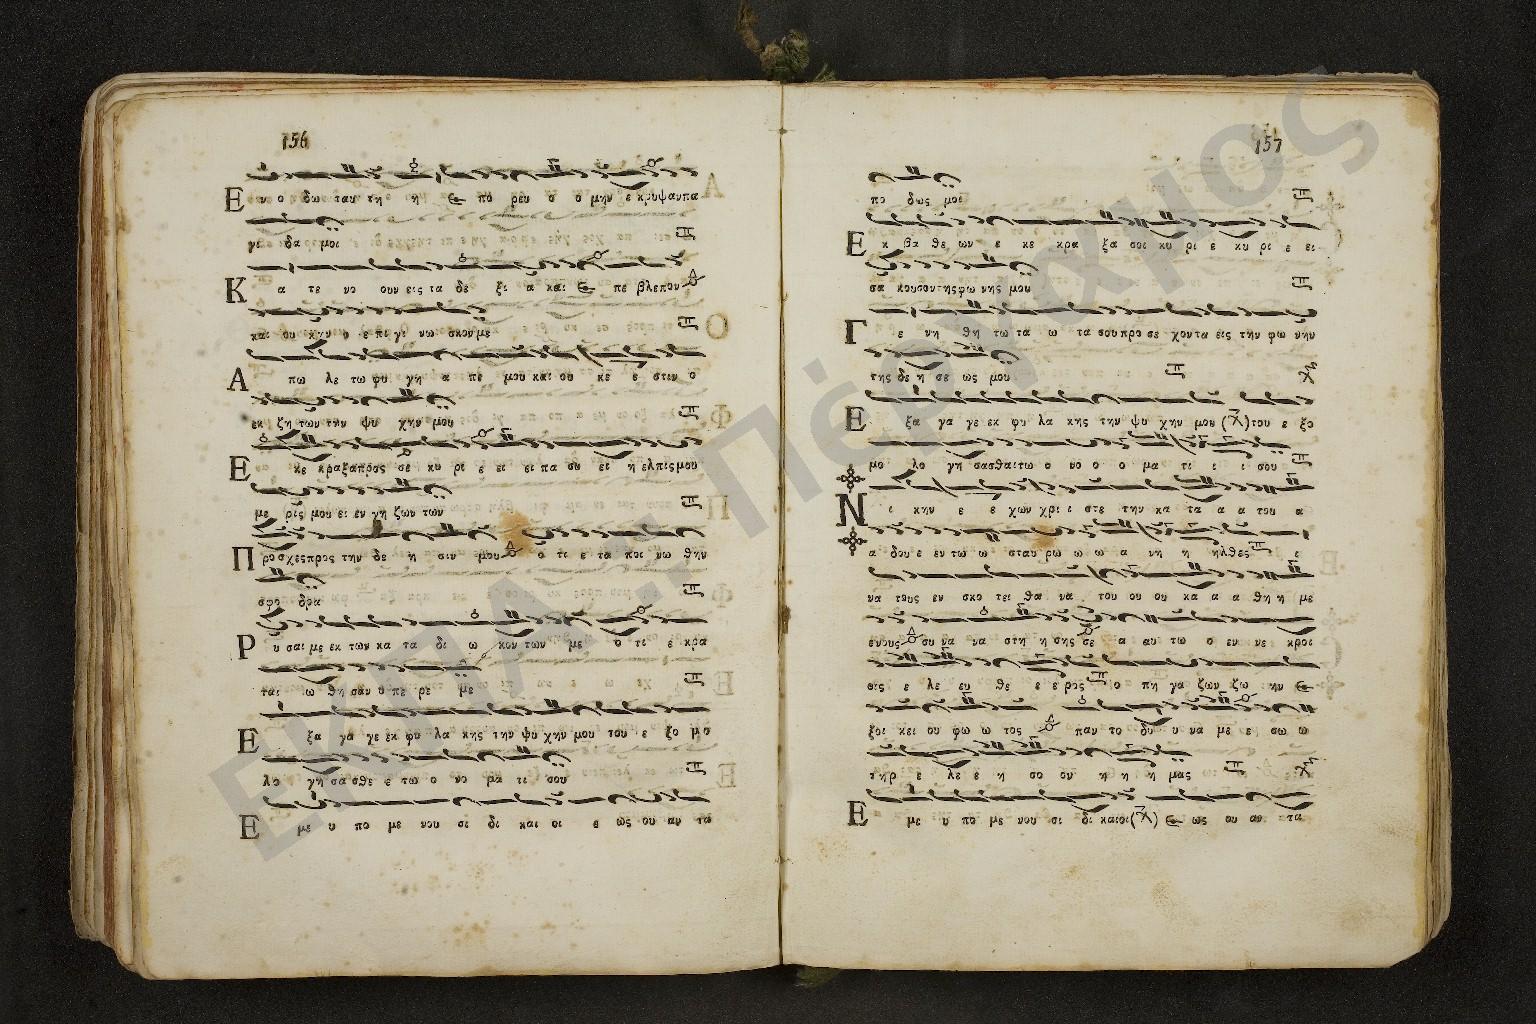 156
Ε ν ο δω ταυ τη η ε πο ρευ ο ο μην ε κρυψανπα
γι δα μοι
Κ α τε νο ουν εις τα δε ξι α και ε πε βλεπον
και ου κην ο ε πι γι νω σκονμε
Α πω λε τω φυ γη α πε μου και ου κε ε στιν ο
εκ ζη των την ψυ χην μου
Ε κε κραξαπρος σε κυ ρι ε ει ειπα συ ει η ελπιςμου
με ρις μου ει εν γη ζων των
Π ροσχεςπρος την δε η σιν μου ο τι ε τα πει νω θην
σφο δρα
Ρ υ σαι με εκ των κα τα δι ω κον των με ο τι ε κρα
ται ω θη σαν υ πε ρε με
Ε ξα γα γε εκ φυ λα κης την ψυ χην μου του ε ξο μο
λο γη σα σθε ε τω ο νο μα τι σου
Ε με υ πο με νου σι δι και οι ε ως ου αν τα
157
πο δως μοι
Ε κ βα θε ων ε κε κρα ξα σοι κυ ρι ε κυ ρι ε ει
σα κουσοντηςφω νης μου
Γ ε νη θη τω τα ω τα σουπρο σε χοντα εις την φω νην
της δε η σε ως μου
Ε ξα γα γε εκ φυ λα κης την ψυ χην μου ( ) του ε ξο
μο λο γη σασθαιτω ο νο ο ο μα τι ι ι σου
Ν ι κην ε ε χων χρι ι στε την κα τα α α του α
α δου ε εν τω ω σταυ ρω ω ω α νη η ηλθες ε
να τους εν σκο τει θα να του ου ου κα α α θη η με
ενους συ να να στη η σης σε α αυ τω ο εν νε κροι
οις ε λε ευ θε ε ε ρος ο πη γα ζων ζω ην ε
ξοι κει ου φω ω τος παν το δυ υ να με σω ω
τηρ ε λε ε η σο ον η η η μας
Ε με υ πο με νου σι δι καιοι ( ) ε ως ου αν τα
ΕΚΠΑ: Πέργαμος